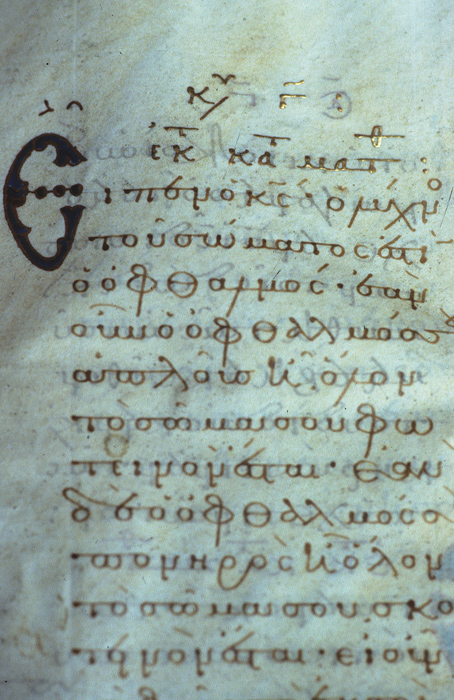 Κυ Γ
ἐκ τ κατ ματθ :
Εἶπεν ὁ κς· ὁ λύχνο
τοῦ σώματος ἐστὶ
ὁ ὀφθαλμός· ἐὰν
οὖν ὁ ὀφθαλμός σου
ἁπλοῦς ᾖ, ὅλον
τὸ σῶμα σου φω
τεινὸν ἔσται· ἐὰν
δὲ ὁ ὀφθαλμός σου
πονηρὸς ᾖ ὅλον
τὸ σῶμα σου σκο
τεινὸν ἔσται· εἰ οὖν